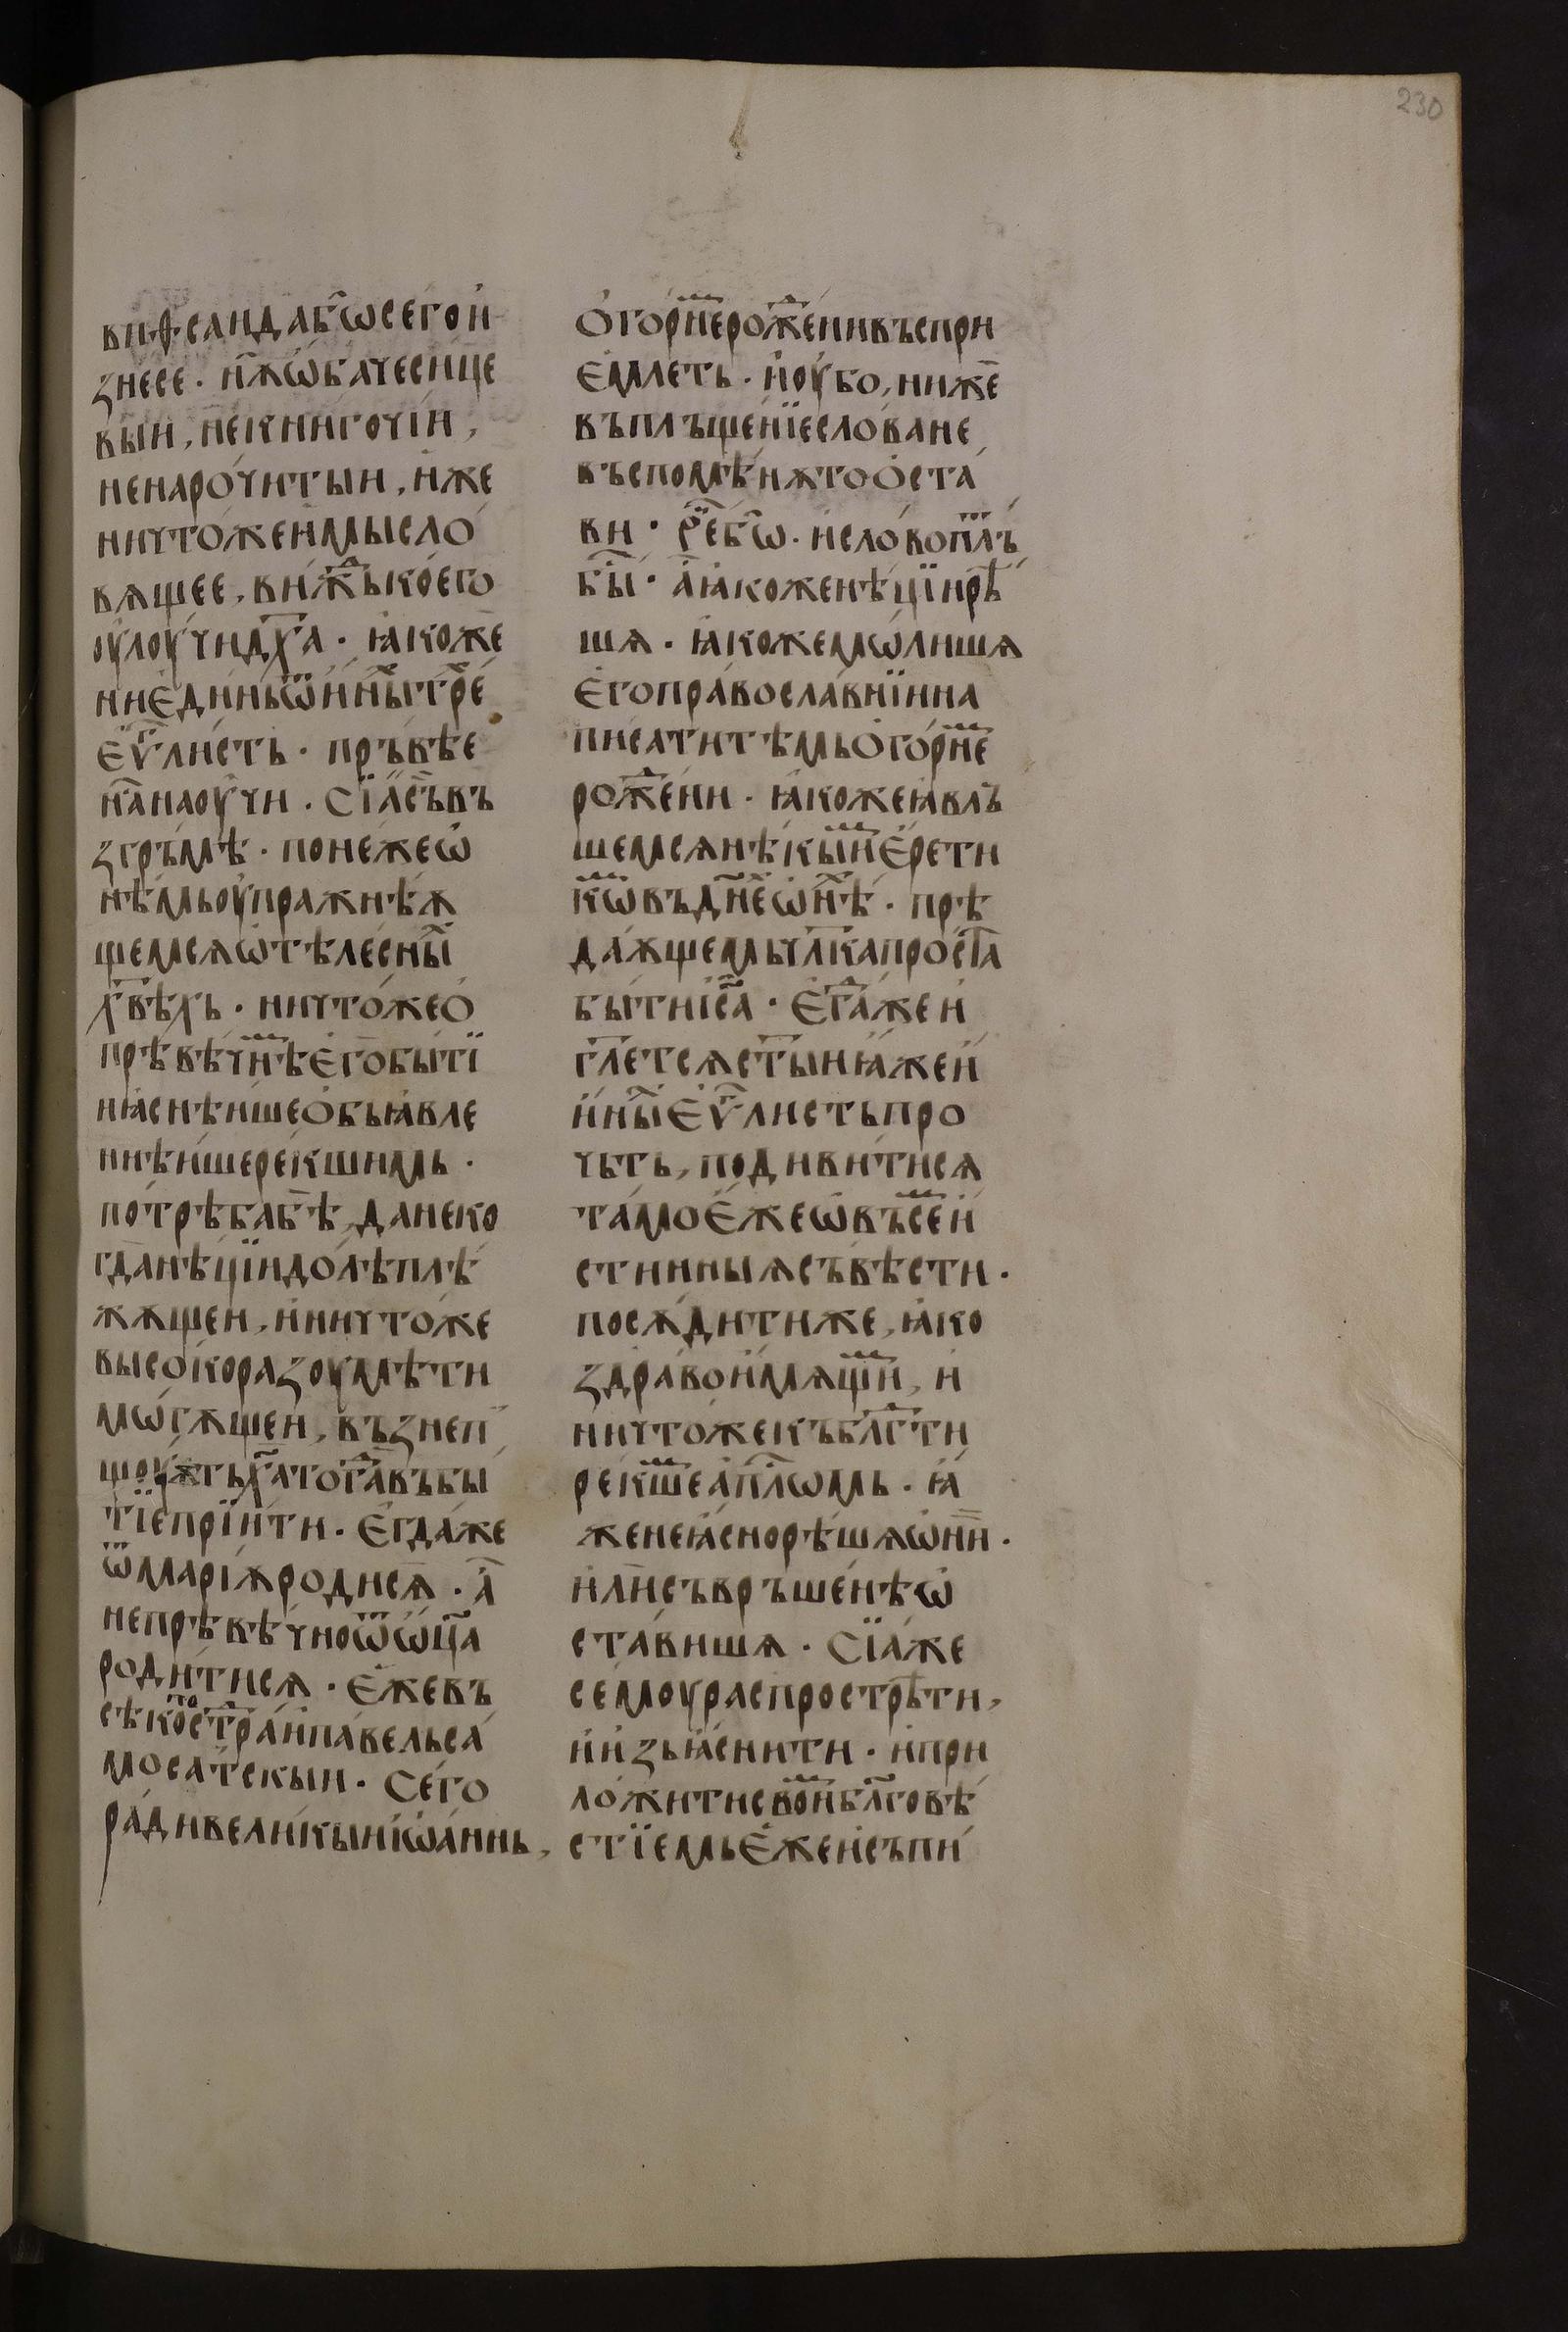 230
виѳсаид аб҃ѡ сего и
знесе · нѫ ѡбаче сице
вын, не книгочїи,
не нарочитын, иже
ничтоже имы сло
вѧщее, виж҃ь кого его
ѹлоучи дх҃а · ꙗкоже
ни единь ѿ инны͏̈ тре
еѵ҃листь · пръвѣе
на҃ наоучи · сїа съ въ
згръмѣ · понеже ѡ
нѣмь оупражнѣѫ
щемсѧ ѡ тѣлесны
х҃вѣхь · ничтоже о
прѣвѣчнѣ его быті
и ꙗснѣише обьꙗвле
ннѣише рекшимь ·
потрѣба бѣ, да неко
гда нѣцїи долѣ плѣ
жѫщеи, и ничтоже
высоко разоумѣти
могѫщеи, възнеп
щоуѫть х҃а тога въ бы
тїе прїити · егдаже
ѿ марїѧ родисѧ · а҃
не прѣвѣчно ѿ ѡц҃а
родитисѧ · еже въ
сѣко пострада и павель са
мосатскын · сего
ради великын іѡаннь,
о горнѣ рожени въспри
емлеть · и оубо, ниже
въплъщенїе слова не
въспомѣнѫто оста
ви · рⷱ҇е бѡ · и слово плъ
бы · а҃ ꙗкоже нѣцїи рѣ
шѧ · ꙗкоже молишѧ
его православнїи на
писати тѣмь о горнѣ
рожени · ꙗкоже ꙗвль
шемсѧ нѣкын ерети
кѡ въ дне ѡнѣ · прѣ
даѫщемь чл҃ка проста
быти іс҃а · егаже и
гл҃етсѧ ст҃ын ꙗже и
инны͏̈ еѵ҃листь про
чьть, подивитисѧ
тамо еже ѡ въсе и
стинныѧ съвѣсти ·
посѧдити же, ꙗко
здраво имѧщи, и
ничтоже къ бл҃гⷭ҇ти
рекше ап҃лѡмь · ꙗ
же не ꙗсно рѣшѧ ѡни ·
или съвръшенѣ ѡ
ставишѧ · сїа же
семоу распрострѣти,
и изьꙗснити · и при
ложити своимь бл҃говѣ
стїемь еже и съпи